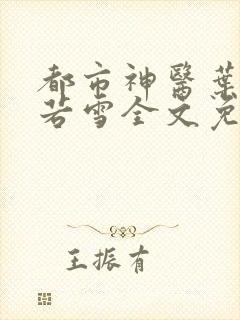 都市神醫葉
若雪全文免
王振有